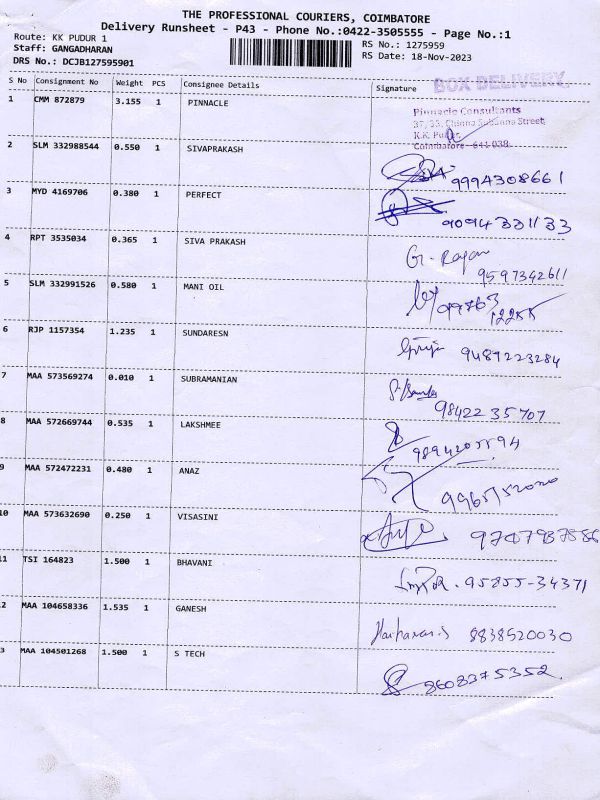 THE PROFESSIONAL COURIERS, COIMBATORE
Delivery Runsheet - P43 - Phone No.:0422-3505555 - Page No.:1
Route: KK PUDUR 1
Staff: GANGADHARAN
DRS No.: DCJB127595901
RS No.: 1275959
RS Date: 18-Nov-2023
S No Consignment No Weight PCS Consignee Details Signature
BOX DELIVERY
1 CMM 872879 3.155 1 PINNACLE
Pinnacle Consultants
37, 33, Chinna Subbana Street
K.K. Pudur,
Coimbatore - 641 038
2 SLM 332988544 0.550 1 SIVAPRAKASH 9994308661
3 MYD 4169706 0.380 1 PERFECT 9094331133
4 RPT 3535034 0.365 1 SIVA PRAKASH G. Rajan 9597342611
5 SLM 332991526 0.580 1 MANI OIL
6 RJP 1157354 1.235 1 SUNDARESN 9489223284
7 MAA 573569274 0.010 1 SUBRAMANIAN 9842235707
8 MAA 572669744 0.535 1 LAKSHMEE
9 MAA 572472231 0.480 1 ANAZ
10 MAA 573632690 0.250 1 VISASINI
11 TSI 164823 1.500 1 BHAVANI 95855-34371
12 MAA 104658336 1.535 1 GANESH Hariharan.S 8838520030
3 MAA 104501268 1.500 1 S TECH 8608375352